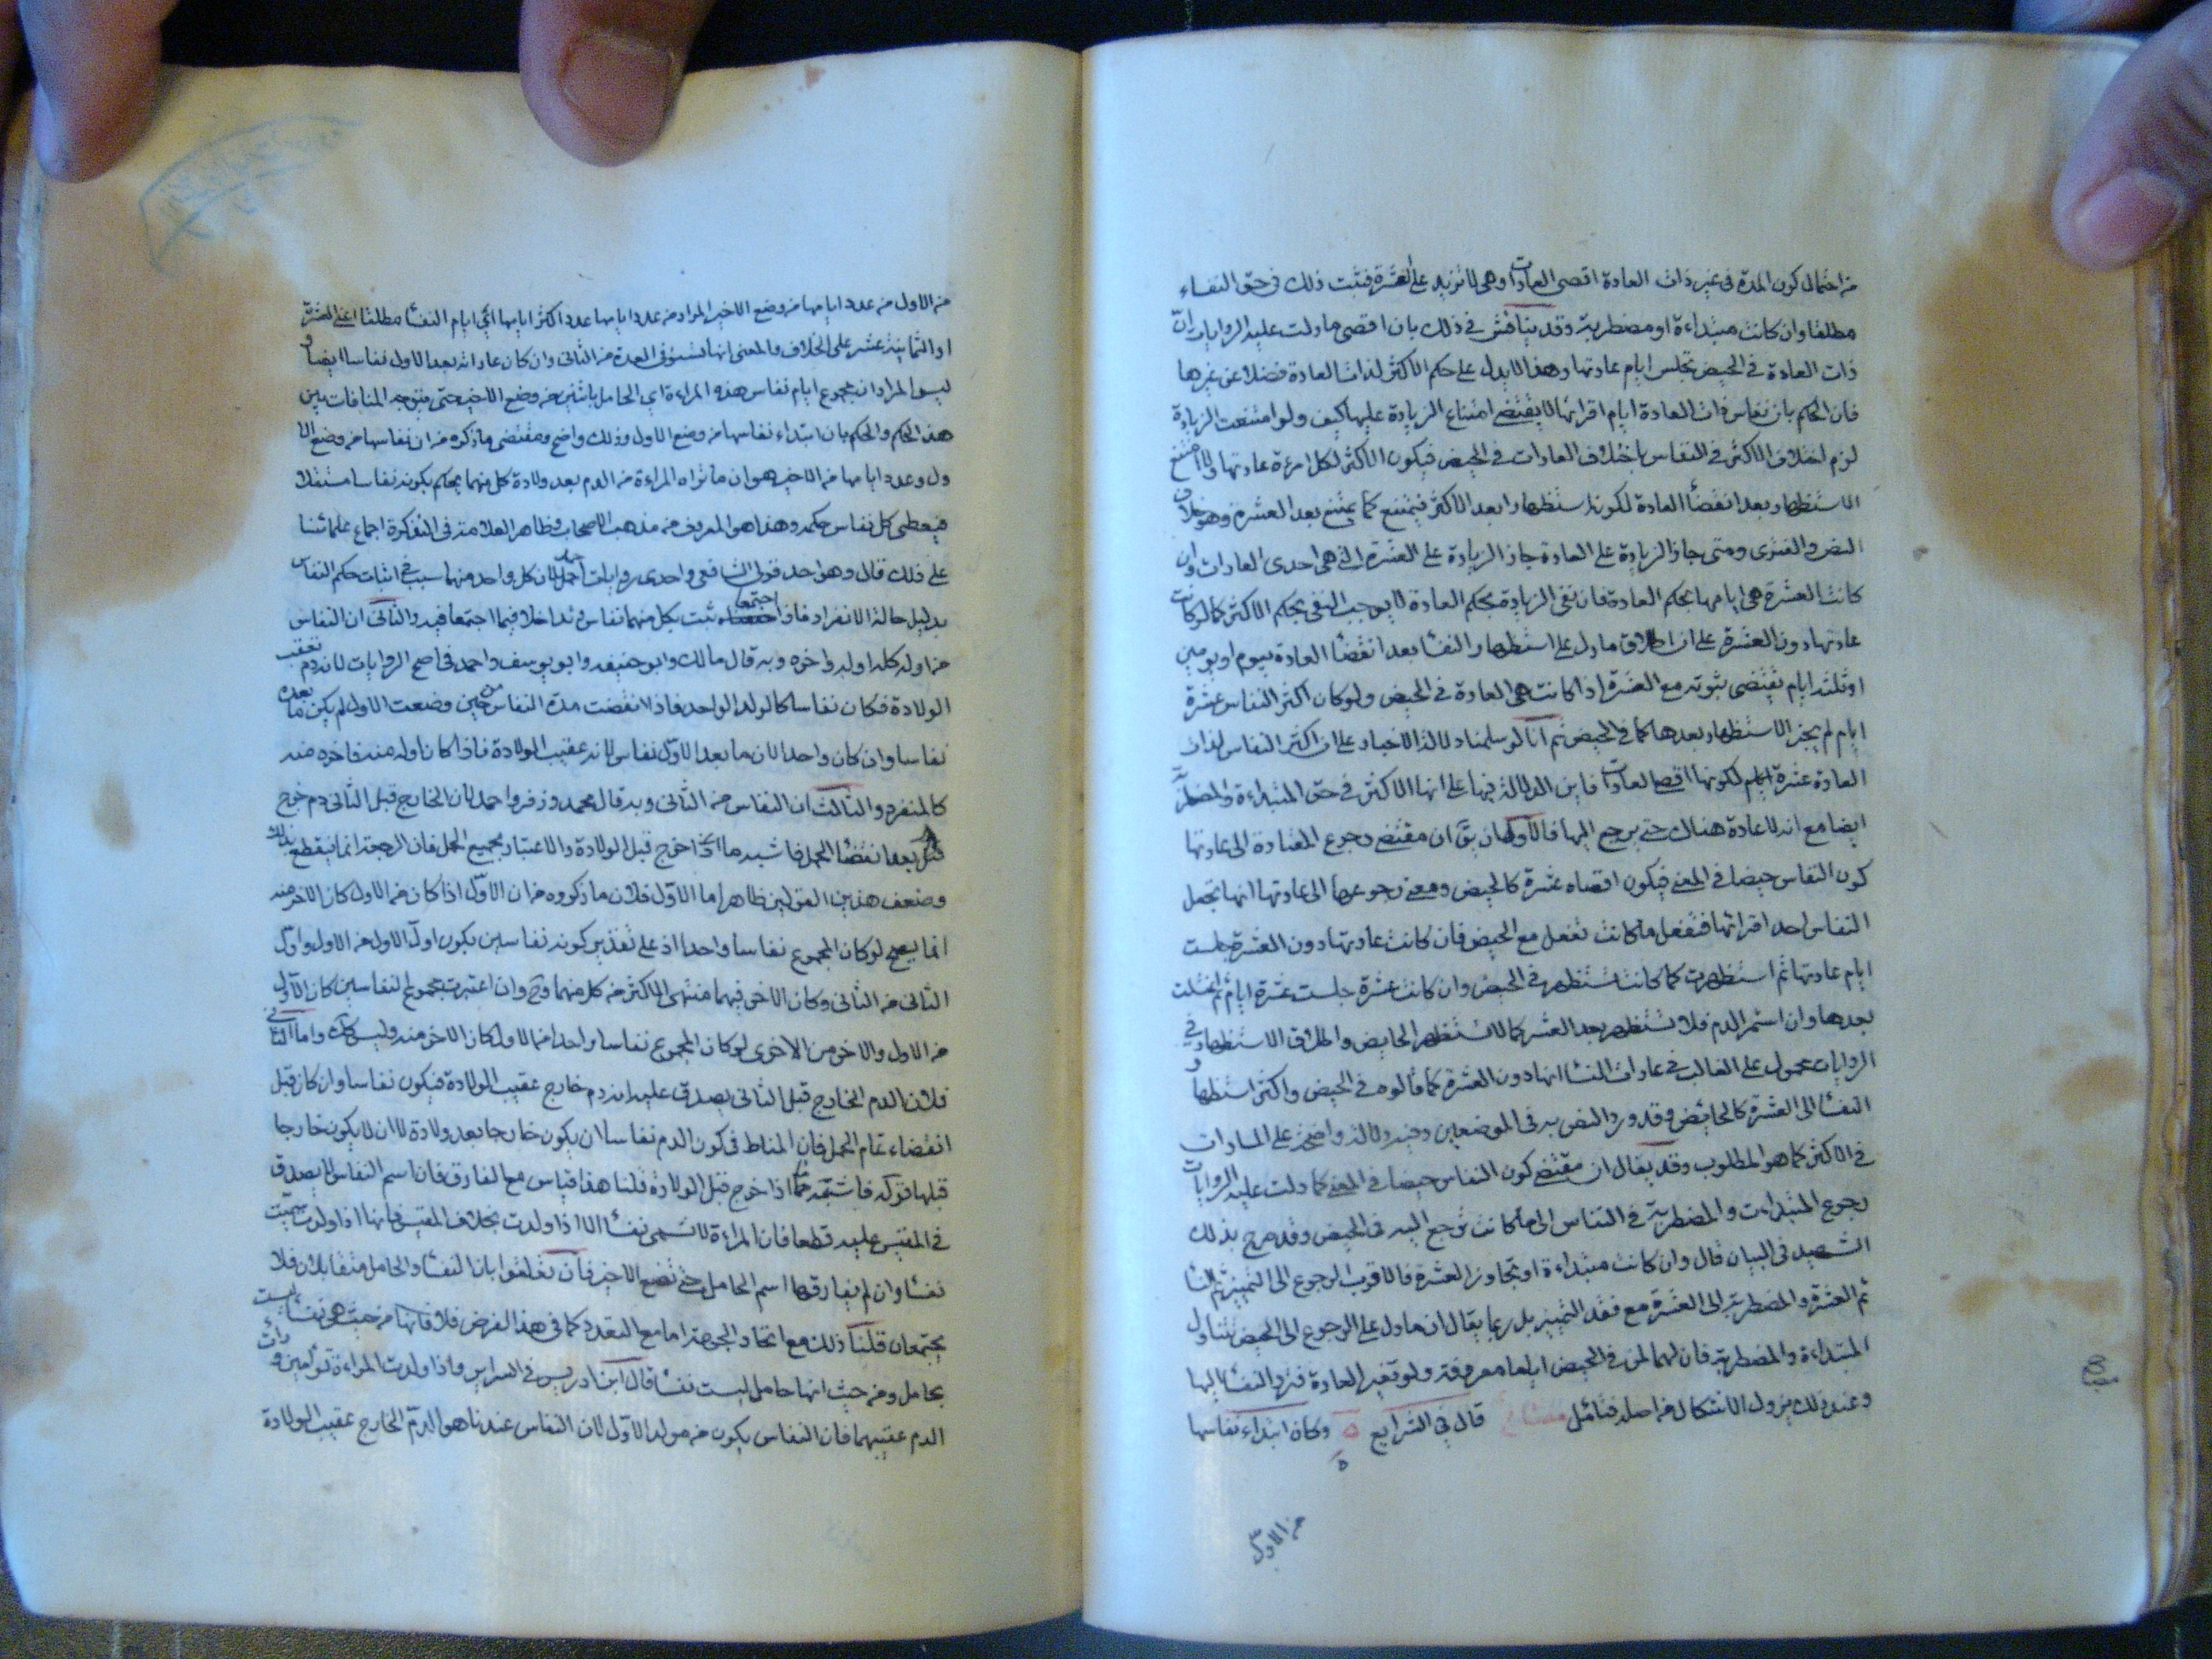 من احتمال كون المدة في غير ذات العادة اقصى العادات وهي لا تزيد على العشرة فثبت ذلك في حق النفساء
مطلقا وان كانت مبتداءة او مضطربة وقد يناقش في ذلك بان اقصى ما دلت عليه الروايات ان
ذات العادة في الحيض تجلس ايام عادتها وهذا لا يدل على حكم الاكثر لذات العادة فضلا عن غيرها
فان الحكم بان نفاس ذات العادة ايام اقرائها لا يقتضي امتناع الزيادة عليها كيف ولو امتنعت الزيادة
لزم اختلاف الاكثر في النفاس باختلاف العادات في الحيض فيكون الاكثر لكل امرءة عادتها ولا امتنع
الاستظهار بعد انقضاء العادة لكونه استظهارا بعد الاكثر فيمتنع كما يمتنع بعد العشرة وهو خلاف
النص والفتوى ومتى جاز الزيادة على العادة جاز الزيادة على العشرة التي هي احدى العادات وان
كانت العشرة هي ايامها بحكم العادة فان نفى الزيادة بحكم العادة لا يوجب النفي بحكم الاكثر كما لو كانت
عادتها دون العشرة على ان اطلاق ما دل على استظهار النفساء بعد انقضاء العادة بيوم او يومين
او ثلثة ايام يقتضي ثبوته مع العشرة اذا كانت هي العادة في الحيض ولو كان اكثر النفاس عشرة
ايام لم يجز الاستظهار بعدها كما في الحيض ثم انا لو سلمنا دلالة الاخبار على ان اكثر النفاس لذات
العادة عشرة ايام لكونها اقصى العادات فاين الدلالة فيها على انها الاكثر في حق المبتداءة والمضطربة
ايضا مع انه لا عادة هناك حتى يرجع اليها فالاولى ان يق ان مقتضى رجوع المعتادة الى عادتها
كون النفاس حيضا في المعنى فيكون اقصاه عشرة كالحيض ومعنى رجوعها الى عادتها انها تجعل
النفاس احد اقرائها فتفعل ما كانت تفعل مع الحيض فان كانت عادتها دون العشرة جلست
ايام عادتها ثم استظهرت كما كانت تستظهر في الحيض وان كانت عشرة جلست عشرة ايام ثم اغتسلت
بعدها وان استمر الدم فلا تستظهر بعد العشر كما لا تستظهر الحايض واطلاق الاستظهار في
الروايات محمول على الغالب في عادات النساء انها دون العشرة كما قالوه في الحيض واكثر استظهار
النفساء الى العشرة كالحائض وقد ورد النص به في الموضعين وفيه دلالة واضحة على المساوات
في الاكثر كما هو المطلوب وقد يقال ان مقتضى كون النفاس حيضا في المعنى كما دلت عليه الروايات
رجوع المبتداءت والمضطربة في النفاس الى ما كانت ترجع اليه في الحيض وقد صرح بذلك
الشهيد في البيان قال وان كانت مبتداءة او تجاوز العشرة فالاقرب الرجوع الى التمييز ثم النساء
ثم العشرة والمضطربة الى العشرة مع فقد التمييز بل ربما يقال ان ما دل على الرجوع الى الحيض يتناول
المبتداءة والمضطربة فان لهما لمن في الحيض اياما معروفة ولو تغير العادة فترد النفساء اليها
وعند ذلك يزول الاشكال من اصله فتامل قال في الشرايع وكان ابتداء نفاسها
من الاول
من الاول من عدد ايامها من وضع الاخير المراد من عدد ايامها عدد اكثر ايامها اي ايام النفساء مطلقا اعني العشرة
او الثمانية عشر على الخلاف والمعنى انها تستوفي العدة من الثاني وان كان عادته بعد الاول نفاسا ايضا و
ليس المراد ان مجموع ايام نفاس هذه المراءة اي الحامل باثنين من وضع الاخير حتى يتوجه المنافات بين
هذا الحكم والحكم بان ابتداء نفاسها من وضع الاول وذلك واضح ومقتضى ما ذكره من ان نفاسها من وضع الا
ول وعدد ايامها من الاخير هو ان ما تراه المراءة من الدم بعد ولادة كل منهما يحكم بكونه نفاسا مستقلا
فيعطى كل نفاس حكمه وهذا هو المعروف من مذهب الاصحاب وظاهر العلامة في التذكرة اجماع علمائنا
على ذلك قال وهو احد قولي الشافعي واحدى روايات احمد لان كل واحد منهما سبب في اثبات حكم النفاس
بدليل حالة الانفراد فاذا اجتمعا ثبت بكل منهما نفاس وتداخلا فيما اجتمعا فيه والثاني ان النفاس
من اوله كله اوله واخره وبه قال مالك وابو حنيفه وابو يوسف واحمد في اصح الروايات لانه دم تعقب
الولادة فكان نفاسا كالولد الواحد فاذا انقضت مدة النفاس من حين وضعت الاول لم يكن ما بعده
نفاسا وان كان واحدا لان ما بعد الاول نفاس لانه عقيب الولادة فاذا كان اوله منه فاخره منه
كالمنفرد والثالث ان النفاس من الثاني وبه قال محمد وزفر واحمد لان الخارج قبل الثاني دم خرج
قبل انقضاء الحمل فاشبه ما اذا خرج قبل الولادة والاعتبار بجميع الحمل فان الرجعة انما ينقطع بذلك
وضعف هذين القولين ظاهر اما الاول فلان ما ذكروه من ان الاول اذا كان من الاول كان الاخر منه
انما يصح لو كان المجموع نفاسا واحدا اذ على تقدير كونه نفاسين يكون اول الاول من الاول واول
الثاني من الثاني وكان الاخر فيهما منتهى الاكثر من كل منهما وح وان اعتبرت مجموع النفاسين كان الاول
من الاول والاخر من الاخرى لو كان المجموع نفاسا واحدا من الاول كان الاخر منه وليس كك واما الثاني
فلان الدم الخارج قبل الثاني يصدق عليه انه دم خارج عقيب الولادة فيكون نفاسا وان كان قبل
انقضاء تمام الحمل فان المناط في كون الدم نفاسا ان يكون خارجا بعد ولادة لا ان لا يكون خارجا
قبلها قوله فاشبه ما اذا خرج قبل الولادة قلنا هذا قياس مع الفارق فان اسم النفاس لا يصدق
في المقيس عليه قطعا فان المراءة لا تسمى نفساء الا اذا ولدت بخلاف المقيس فانها اذا ولدت سميت
نفساء وان لم يفارقها اسم الحامل حتى تضع الاخير فان تعلقوا بان النفساء والحامل متقابلان فلا
يجتمعان قلنا ذلك مع اتحاد الجهة اما مع التعدد كما في هذا الفرض فلا فانها من حيث هي نفساء ليست
بحامل ومن حيث انها حامل ليست نفساء قال ابن ادريس في السراير واذا ولدت المراءة توأمين و رأت
الدم عقيبهما فان النفاس يكون من مولد الاول لان النفاس عندنا هو الدم الخارج عقيب الولادة